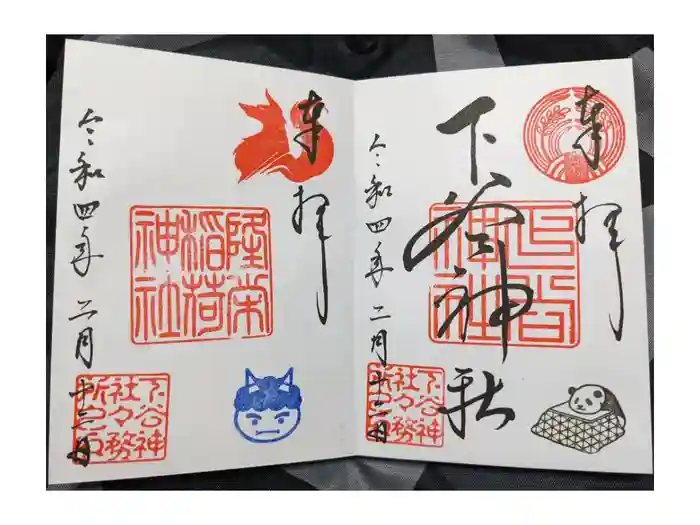 奉拝
下谷神社
令和四年二月十三日
下谷神社
社々務所之印
奉拝
隆栄稲荷神社
令和四年二月十三日
下谷神社
社々務所之印